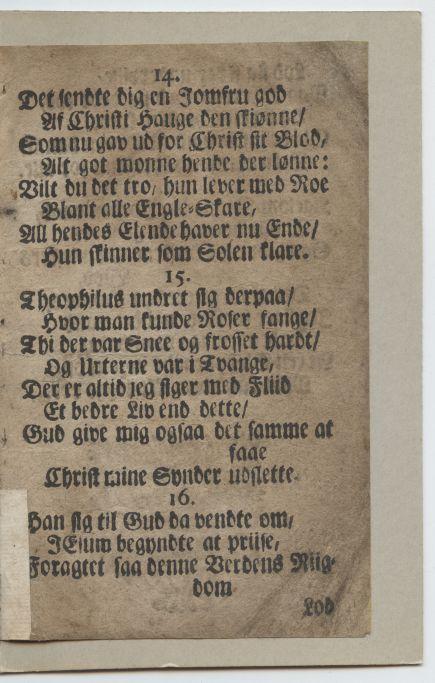 14.
Det sendte dig en Jomfru god
Af Christi Hauge den skiønne/
Som nu gav ud for Christ sit Blod,
Alt got monne hende der lønne:
Vilt du det tro, hun lever med Roe
Blant alle Engle-Skare,
All hendes Elende haver nu Ende/
Hun skinner som Solen klare.
15.
Theophilus undret sig derpaa/
Hvor man kunde Roser fange/
Thi der var Snee og frosset hardt/
Og Urterne var i Tvange,
Der er altid jeg siger med Fliid
Et bedre Liv end dette/
Gud give mig ogsaa det samme at
faae
Christ mine Synder udslette.
16.
Han sig til Gud da vendte om,
JEsum begyndte at priise,
Foragtet saa denne Verdens Riig-
dom
Lod